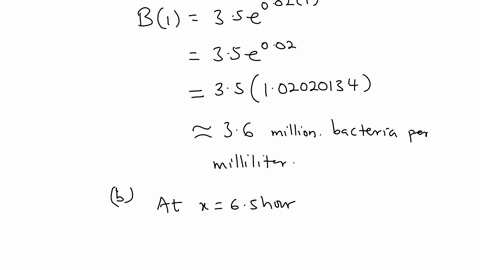 B(1) = 3.5e^0.02(1)
= 3.5e^0.02
= 3.5(1.02020134)
≈ 3.6 million. bacteria per
milliliter.
(b) At x = 6.5hour